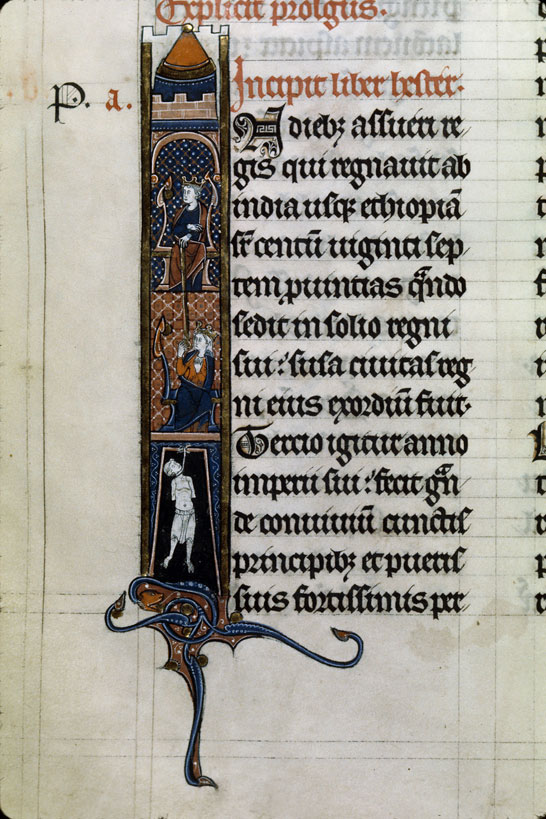 Explicit prologus.
P. a.
Incipit liber hester.
N diebꝫ assueri re
gis qui regnauit ab
india usqꝫ ethiopiā
sr̄ centū uiginti sep
tem ꝓuintias qn̄do
sedit in solio regni
sui: susa ciuitas reg
ni eius exordiū fuit.
Tercio igitur anno
imperii sui: fecit gn̄
de conuiuiū cunctis
principibꝫ et pueris
suis fortissimis per